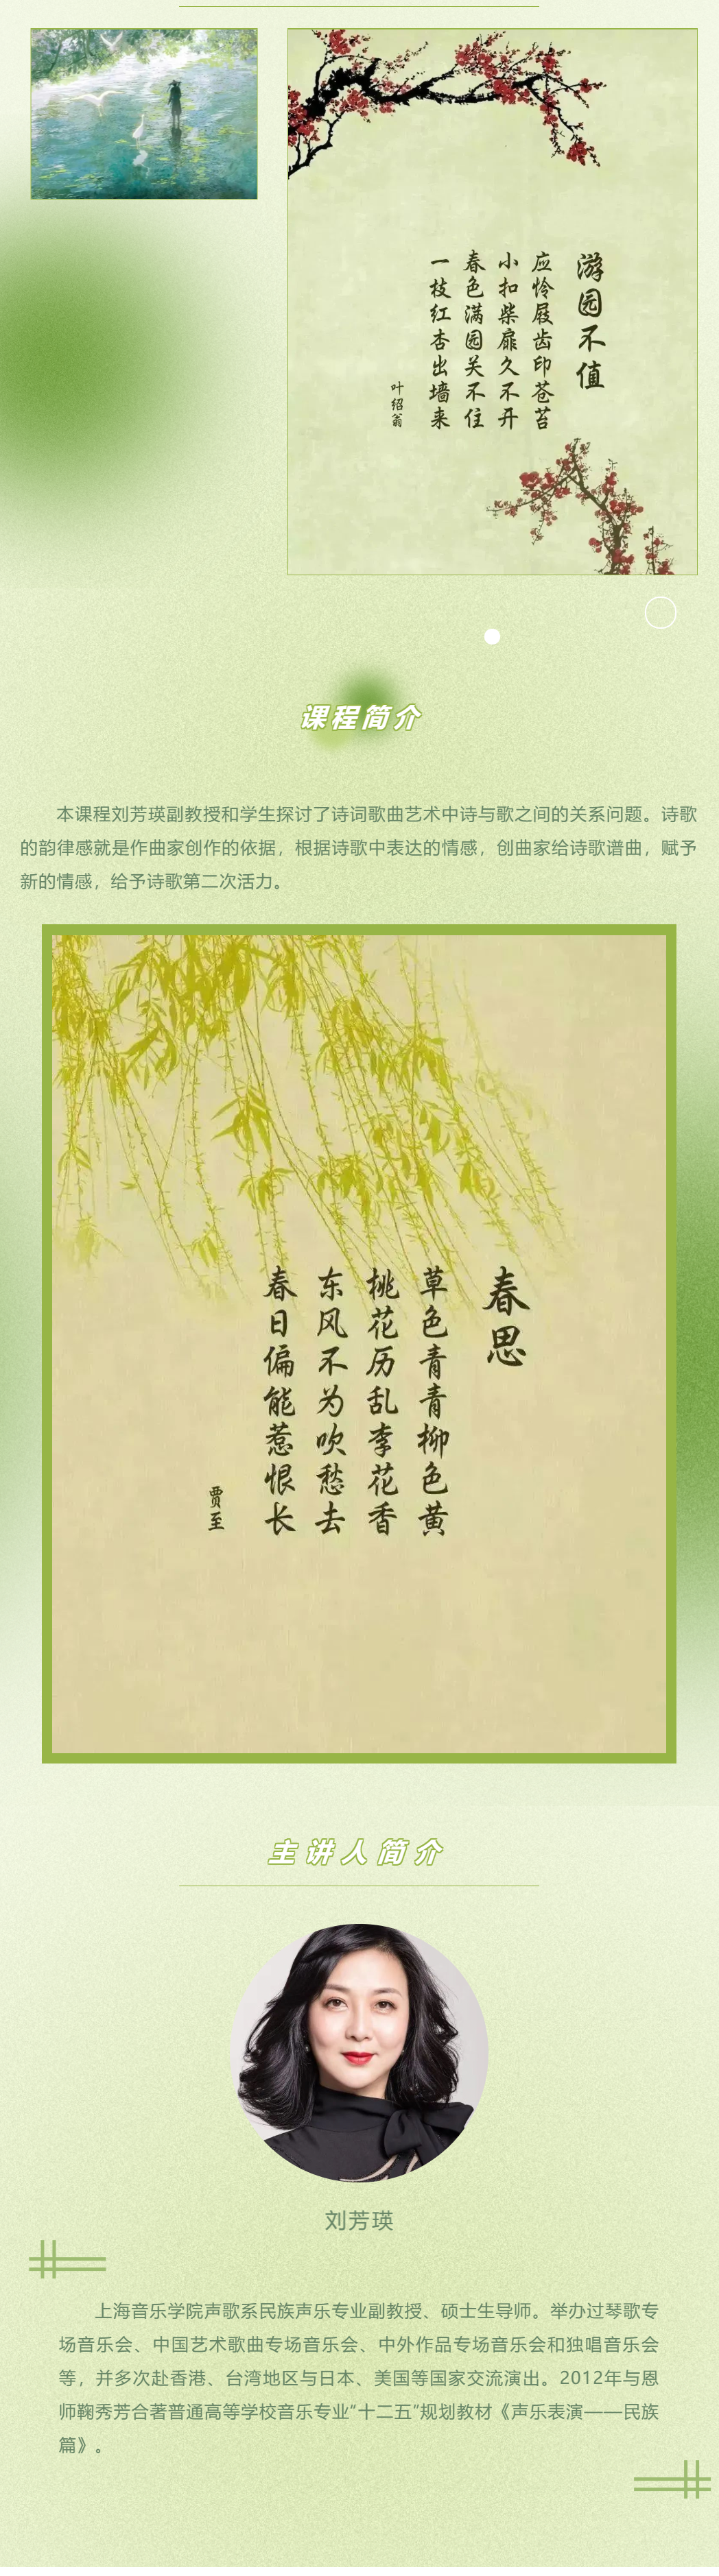 游园不值
应怜屐齿印苍苔
小扣柴扉久不开
春色满园关不住
一枝红杏出墙来
叶绍翁
课程简介
本课程刘芳瑛副教授和学生探讨了诗词歌曲艺术中诗与歌之间的关系问题。诗歌
的韵律感就是作曲家创作的依据，根据诗歌中表达的情感，创曲家给诗歌谱曲，赋予
新的情感，给予诗歌第二次活力。
春思
草色青青柳色黄
桃花历乱李花香
东风不为吹愁去
春日偏能惹恨长
贾至
主讲人简介
刘芳瑛
上海音乐学院声歌系民族声乐专业副教授、硕士生导师。举办过琴歌专
场音乐会、中国艺术歌曲专场音乐会、中外作品专场音乐会和独唱音乐会
等，并多次赴香港、台湾地区与日本、美国等国家交流演出。2012年与恩
师鞠秀芳合著普通高等学校音乐专业“十二五”规划教材《声乐表演——民族
篇》。